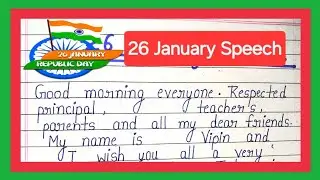 26 JANUARY
REPUBLIC DAY
26 January Speech
Good morning everyone. Respected
principal, teacher's,
parents and all my dear friends.
My name is Vipin and
I wish you all a very